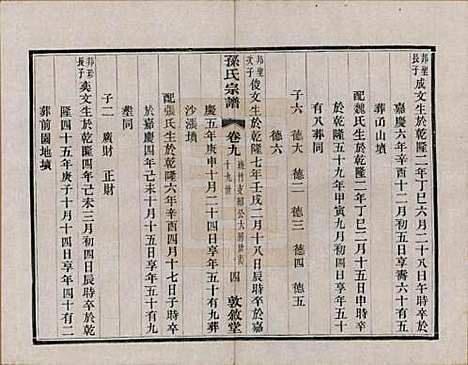 邦聖長子
成文生於乾隆二年丁巳六月二十日辰時卒於
嘉慶六年十一月十四日享壽六十有五
葬甬山墳
配魏氏生於乾隆二年丁巳二月十五日申時卒
於乾隆五十九年甲寅九月初四日享年五十
有八葬同
子六 德大 德二 德三 德四 德五
德六
邦聖次子
俊文生於乾隆七年壬戌二月十八日辰時卒於嘉
孫氏宗譜 卷九 十九世 四 敦敘堂
慶五年庚申十月二十四日享年五十有九葬
沙漲墳
配張氏生於乾隆六年辛酉四月十七日子時卒
於嘉慶四年己未十月十五日享年五十有九
葬同
子二 廣財 正財
邦珍長子
奕文生於乾隆四年己未三月初四日辰時卒於乾
隆四十五年庚子十月十四日享年四十有二
葬前園地墳